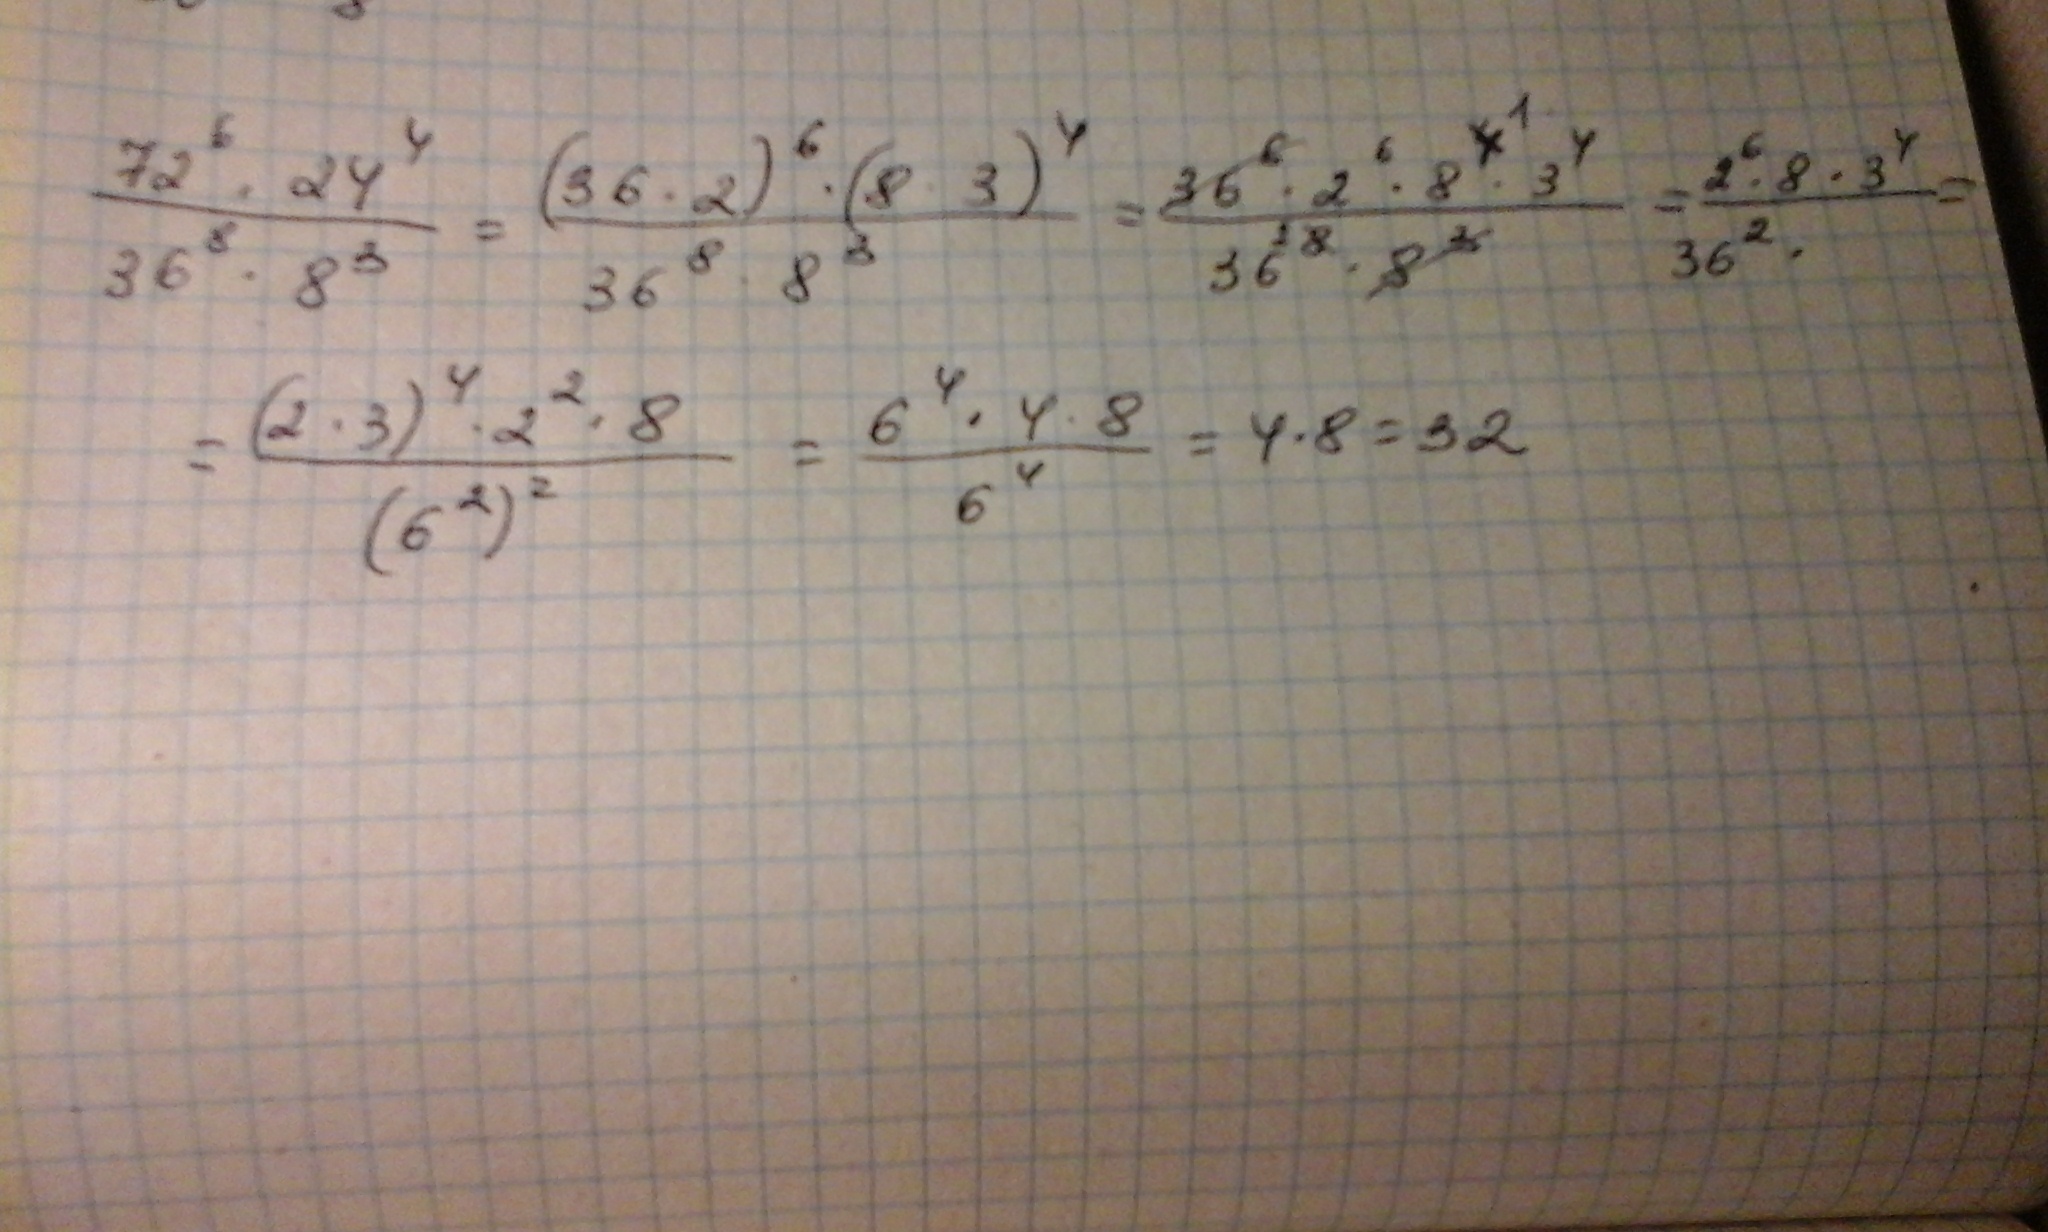 72⁶ · 24⁴ / 36⁸ · 8³ = (36 · 2)⁶ · (8 · 3)⁴ / 36⁸ · 8³ = 36⁶ · 2⁶ · 8⁴ ¹ · 3⁴ / 36² ⁸ · 8³ = 2⁶ · 8 · 3⁴ / 36² · =
= (2 · 3)⁴ · 2² · 8 / (6²)² = 6⁴ · 4 · 8 / 6⁴ = 4 · 8 = 32